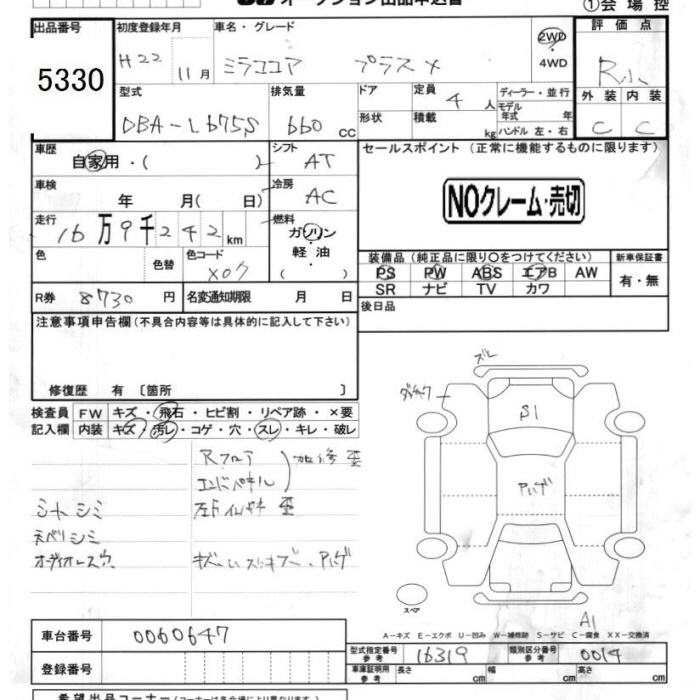 オークション出品申込書
①会場控
出品番号
5330
初度登録年月
H22 11月
車名・グレード
ミラココア プラスX
2WD
・
4WD
評価点
R
外装 内装
C C
型式
DBA-L675S
排気量
660 cc
ドア
形状
定員 4 人
積載 kg
ディーラー・並行
モデル年式 年
ハンドル 左・右
車歴
自家用・( )
シフト
AT
車検
年 月( 日)
冷房
AC
走行
16万9千242km
燃料
ガソリン
・
軽油
( )
色
色替
色コード
X07
R券 8730円
名変通知期限 月 日
セールスポイント (正常に機能するものに限ります)
NOクレーム・売切
装備品(純正品に限り○をつけてください)
PS PW ABS エアB AW
SR ナビ TV カワ
新車保証書
有・無
後日品
注意事項申告欄(不具合内容等は具体的に記入して下さい)
修復歴 有〔箇所 〕
検査員記入欄
FW キズ・飛石・ヒビ割・リペア跡・×要
内装 キズ・汚レ・コゲ・穴・スレ・キレ・破レ
Rフロア
エンドパネル
シートシミ
天バリシミ
オーディオレス穴
ズレ
S1
ハゲ
A1
スペア
A-キズ E-エクボ U-凹み W-補修跡 S-サビ C-腐食 XX-交換済
車台番号
0060647
登録番号
型式指定番号 参考
16319
類別区分番号 参考
0014
車庫証明用 参考
長さ cm
幅 cm
高さ cm
希望出品コーナー(コーナーは各会場により異なります)